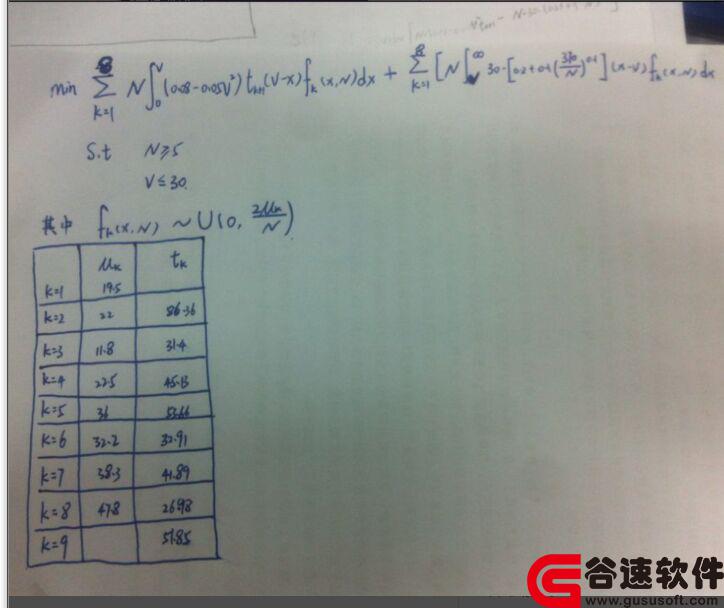 min ∑_{k=1}^{8} N∫_0^V (0.08-0.05V²) t_{k+1} (V-x) f_k(x,N)dx + ∑_{k=1}^{8} [N∫_V^∞ 30·[0.2+0.1(310/N)^{0.1}](x-V) f_k(x,N)dx
S.t N≥5
V≤30
其中 f_k(x,N) ~ U(0, 2μ_k/N)
μ_k t_k
k=1 19.5
k=2 22 86.36
k=3 11.8 31.4
k=4 22.5 45.13
k=5 36 53.66
k=6 32.2 32.91
k=7 38.3 41.89
k=8 47.8 26.98
k=9 51.85
谷速软件
www.gususoft.com